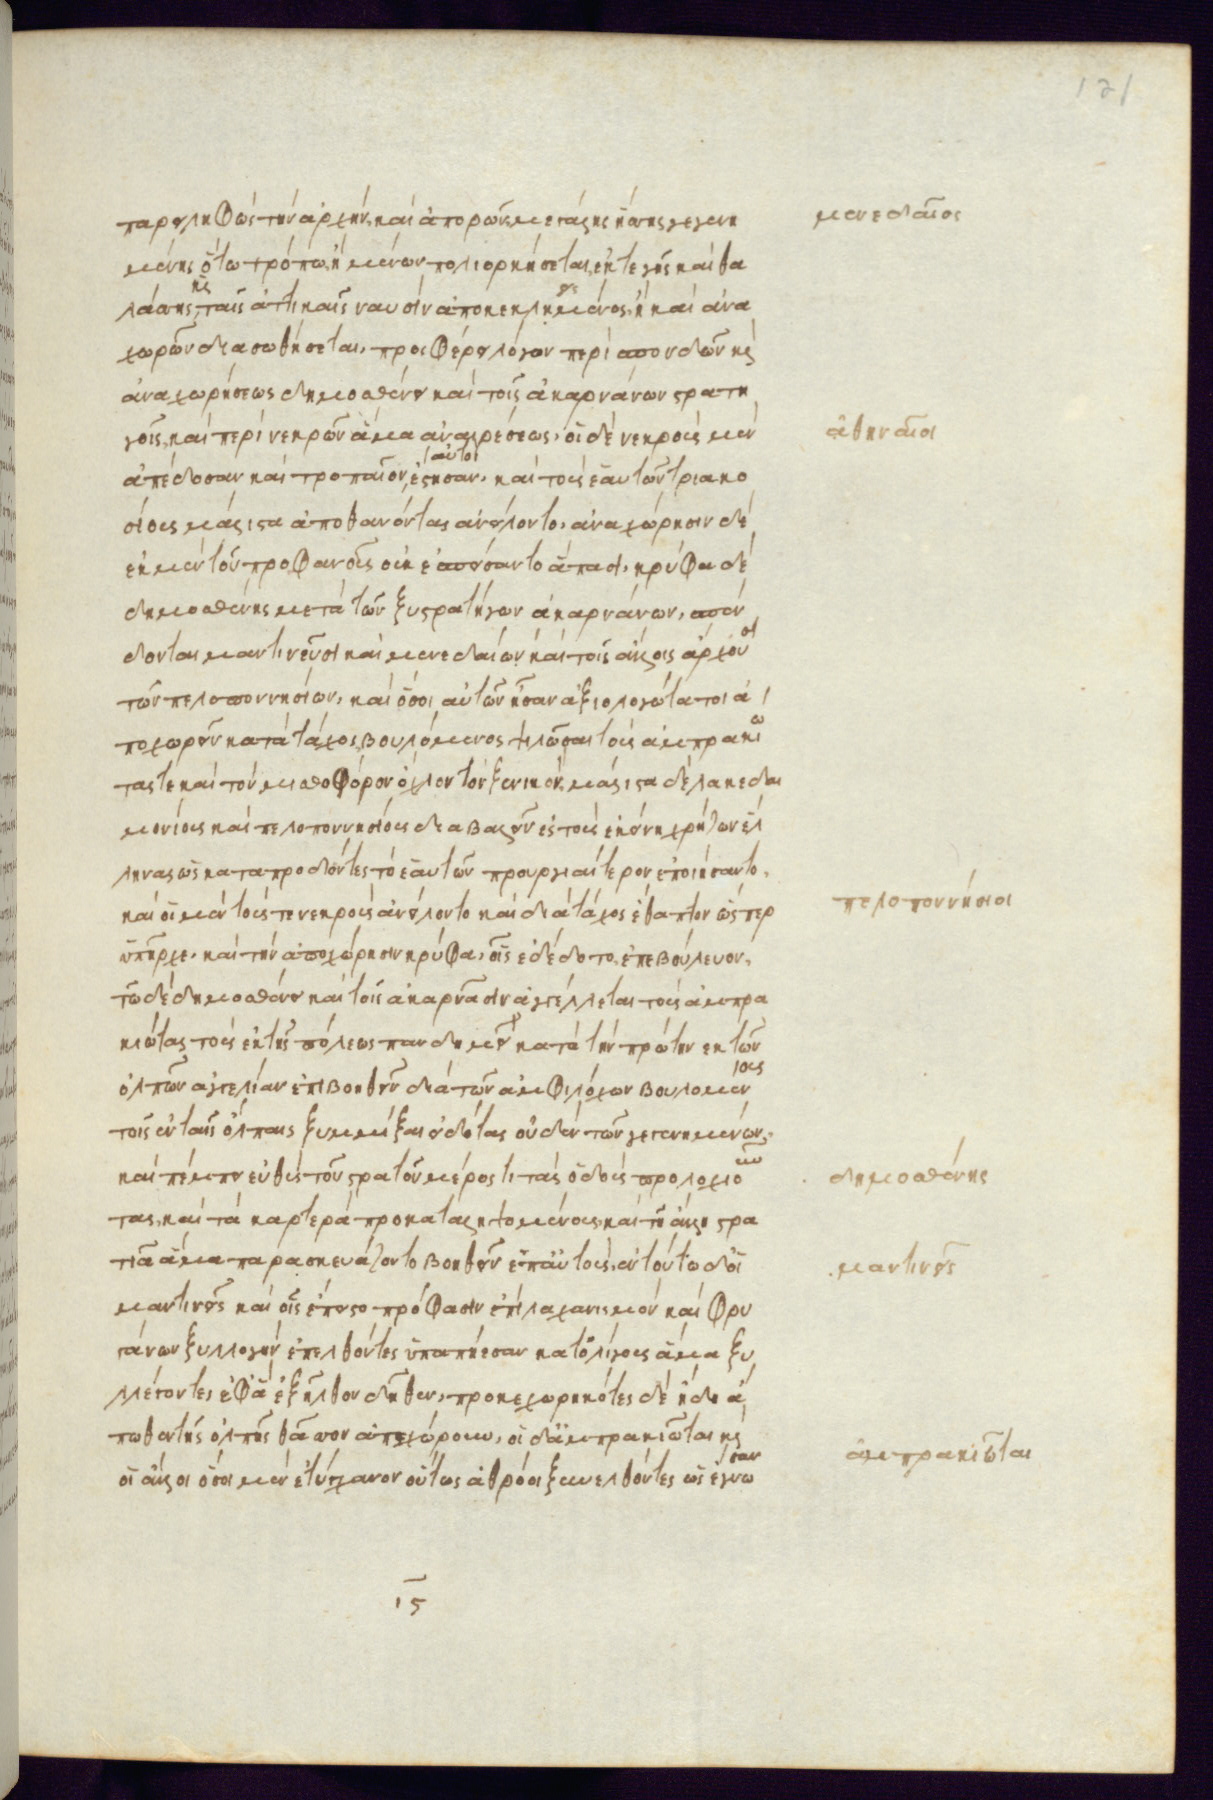 121
παρειληφὼς τὴν ἀρχὴν, καὶ ἀπορῶν μεγάλης ἥσσης γεγενη
μένης ὅτω τρόπω, ἢ μένων πολιορκήσεται, ἐκ τε γῆς καὶ θα
λάσσης καὶ ταῖς ἀττικαῖς ναυσὶν ἀποκεκλῃμένος, ἢ καὶ ἀνα
χωρῶν διασωθήσεται, προσφέρει λόγον περὶ σπονδῶν καὶ
ἀναχωρήσεως δημοσθένει καὶ τοῖς ἀκαρνάνων στρατη
γοῖς, καὶ περὶ νεκρῶν ἅμα ἀναιρέσεως, οἱ δὲ νεκροὺς μὲν
ἀπέδοσαν καὶ τροπαῖον αὐτοὶ ἔστησαν, καὶ τοὺς ἑαυτῶν τριακο
σίους μάλιστα ἀποθανόντας ἀνείλοντο, ἀναχώρησιν δὲ
ἐκ μὲν τοῦ προφανοῦς οὐκ ἐσπείσαντο ἅπασι, κρύφα δὲ
δημοσθένης μετὰ τῶν ξυστρατήγων ἀκαρνάνων, σπέν
δονται μαντινεῦσι καὶ μενεδαίων καὶ τοῖς ἄλλοις ἄρχουσι
τῶν πελοποννησίων, καὶ ὅσοι αὐτῶν ἦσαν ἀξιολογώτατοι ἀ
ποχωρεῖν κατὰ τάχος, βουλόμενος ψιλῶσαι τοὺς ἀμπρακιώ
τας τε καὶ τὸν μισθοφόρον ὄχλον τὸν ξενικόν, μάλιστα δὲ λακεδαι
μονίους καὶ πελοποννησίους διαβαλεῖν ἐς τοὺς ἐκείνῃ χρῄζων ἕλ
ληνας ὡς καταπροδόντες τὸ ἑαυτῶν προυργιαίτερον ἐποιήσαντο,
καὶ οἱ μὲν τούς τε νεκροὺς ἀνείλοντο καὶ διὰ τάχος ἔθαπτον ὥσπερ
ὑπῆρχε, καὶ τὴν ἀποχώρησιν κρύφα, οἷς ἐδέδοτο, ἐπεβούλευον,
τῶ δὲ δημοσθένει καὶ τοῖς ἀκαρνᾶσιν ἀγγέλλεται τοὺς ἀμπρα
κιώτας τοὺς ἐκ τῆς πόλεως πανδημεὶ κατὰ τὴν πρώτην ἐκ τῶν
ὀλπῶν ἀγγελίαν ἐπιβοηθεῖν διὰ τῶν ἀμφιλόχων βουλομένους
τοῖς ἐν ταῖς ὄλπαις ξυμμίξαι εἰδότας οὐδὲν τῶν γεγενημένων,
καὶ πέμπει εὐθὺς τοῦ στρατοῦ μέρος τι τὰς ὁδοὺς προλοχιοῦν
τας, καὶ τὰ καρτερὰ προκαταληψομένους, καὶ τῇ ἄλλῃ στρα
τιᾷ ἅμα παρασκευάζοντο βοηθεῖν ἐπ' αὐτούς, ἐν τούτω δ' οἱ
μαντινεῖς καὶ οἷς ἔσπειστο πρόφασιν ἐπὶ λαχανισμὸν καὶ φρυ
γάνων ξυλλογὴν ἐπελθόντες ὑπαπῄεσαν κατ' ὀλίγους ἅμα ξυ
λλέγοντες ἐφ' ἃ ἐξῆλθον δῆθεν, προκεχωρηκότες δὲ ἤδη ἄ
πωθεν τῆς ὄλπης θᾶσσον ἀπεχώρουν, οἱ δ' ἀμπρακιῶται καὶ
οἱ ἄλλοι ὅσοι μὲν ἐτύγχανον οὕτως ἀθρόοι ξυνελθόντες ὡς ἔγνωσαν
μενεδαῖος
ἀθηναῖοι
πελοποννήσιοι
δημοσθένης
μαντινεῖς
ἀμπρακιῶται
ις